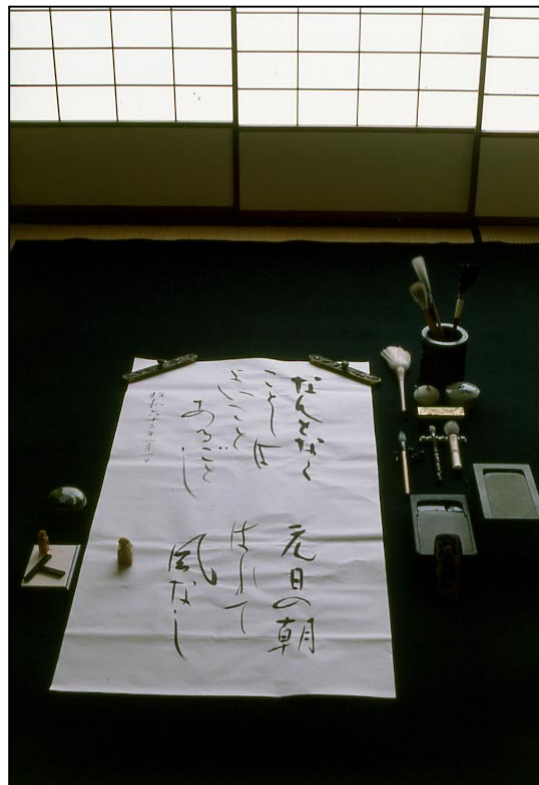 なんとなく
ことしは
よいこと
あるごとし
元日の朝
はれて
風なし